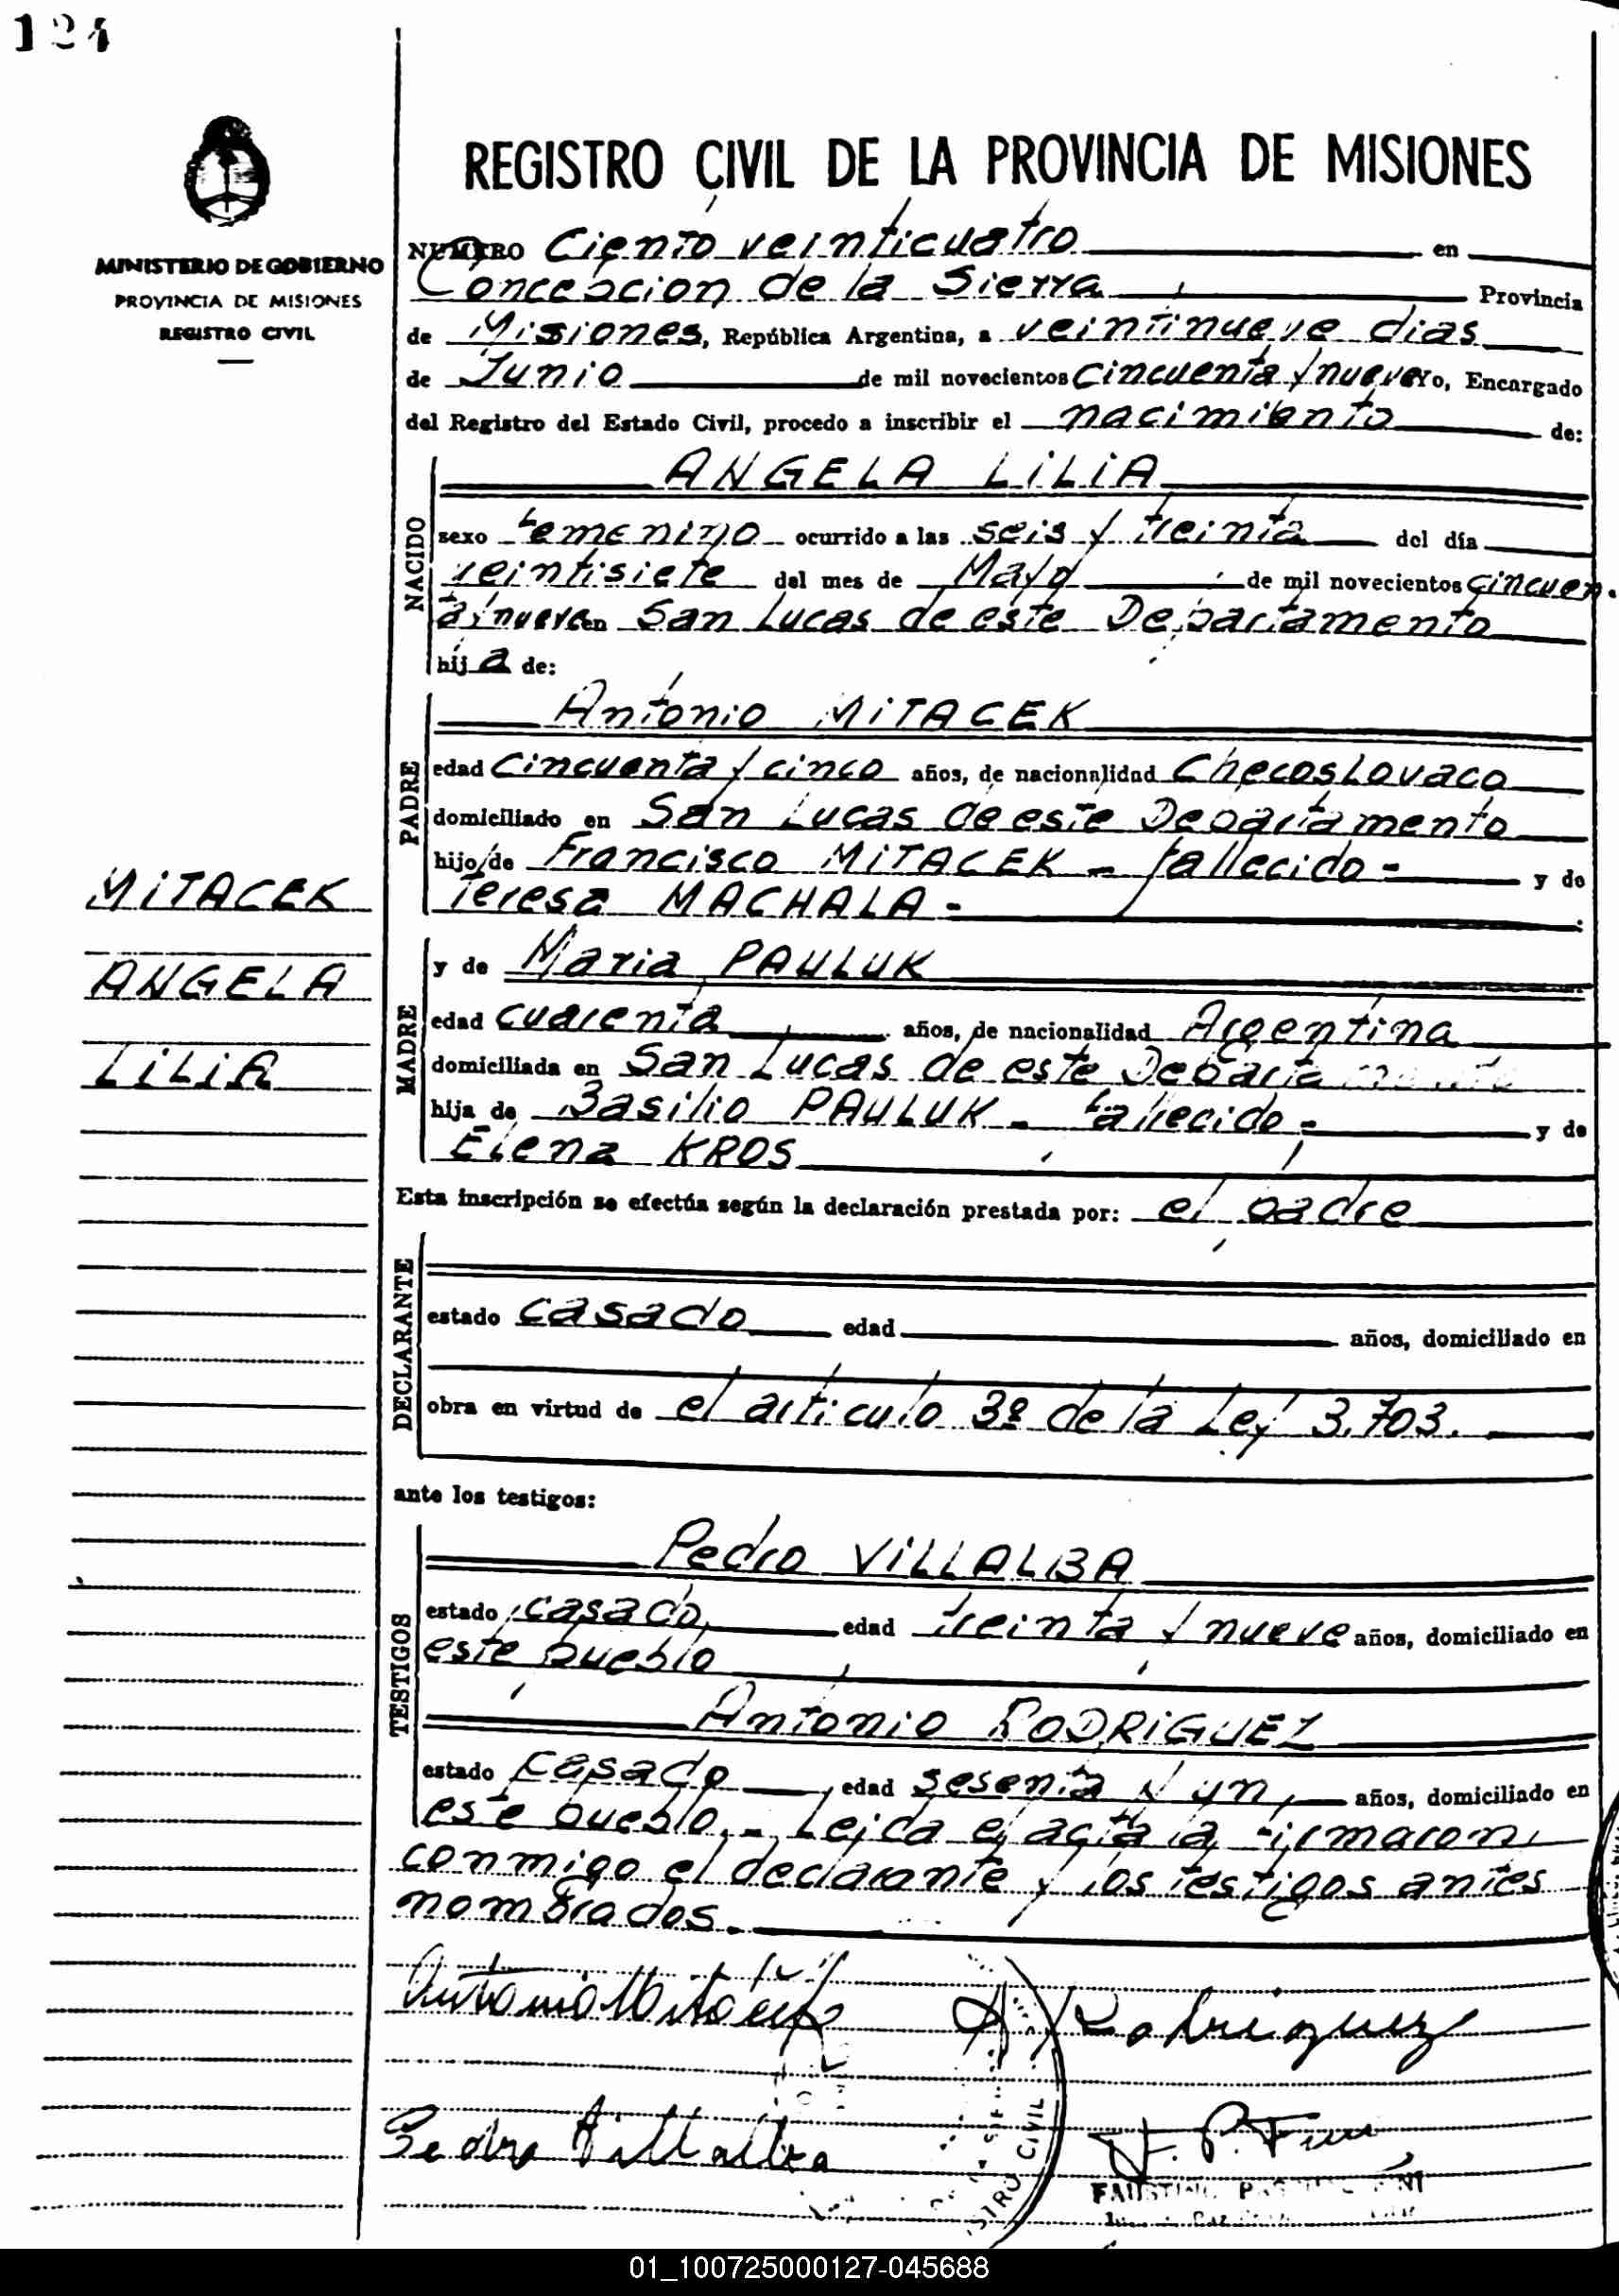 124
REGISTRO CIVIL DE LA PROVINCIA DE MISIONES
MINISTERIO DE GOBIERNO
PROVINCIA DE MISIONES
REGISTRO CIVIL
NUMERO Ciento veinticuatro en
Concepcion de la Sierra Provincia
de Misiones, República Argentina, a veintinueve dias
de Junio de mil novecientos cincuenta y nueve yo, Encargado
del Registro del Estado Civil, procedo a inscribir el nacimiento de:
NACIDO
ANGELA LILIA
sexo femenino ocurrido a las seis y treinta del día
veintisiete del mes de Mayo de mil novecientos cincuen.
ta y nueve en San Lucas de este Departamento
hija de:
PADRE
Antonio MITACEK
edad cincuenta y cinco años, de nacionalidad Checoslovaco
domiciliado en San Lucas de este Departamento
hijo de Francisco MITACEK - fallecido - y de
Teresa MACHALA -
MITACEK
ANGELA
LILIA
MADRE
y de Maria PAULUK
edad cuarenta años, de nacionalidad Argentina
domiciliada en San Lucas de este Departamento
hija de Basilio PAULUK - fallecido - y de
Elena KROS
Esta inscripción se efectúa según la declaración prestada por: el padre
DECLARANTE
estado casado edad años, domiciliado en
obra en virtud de el articulo 3º de la Ley 3.703.
ante los testigos:
TESTIGOS
Pedro VILLALBA
estado casado edad treinta y nueve años, domiciliado en
este pueblo
Antonio RODRIGUEZ
estado casado edad sesenta y un años, domiciliado en
este pueblo.- Leida el acta la firmaron
conmigo el declarante y los testigos antes
nombrados.
Antonio Mitáček A Rodriguez
Pedro Villalba
CIVIL
FAUSTINO
01_100725000127-045688